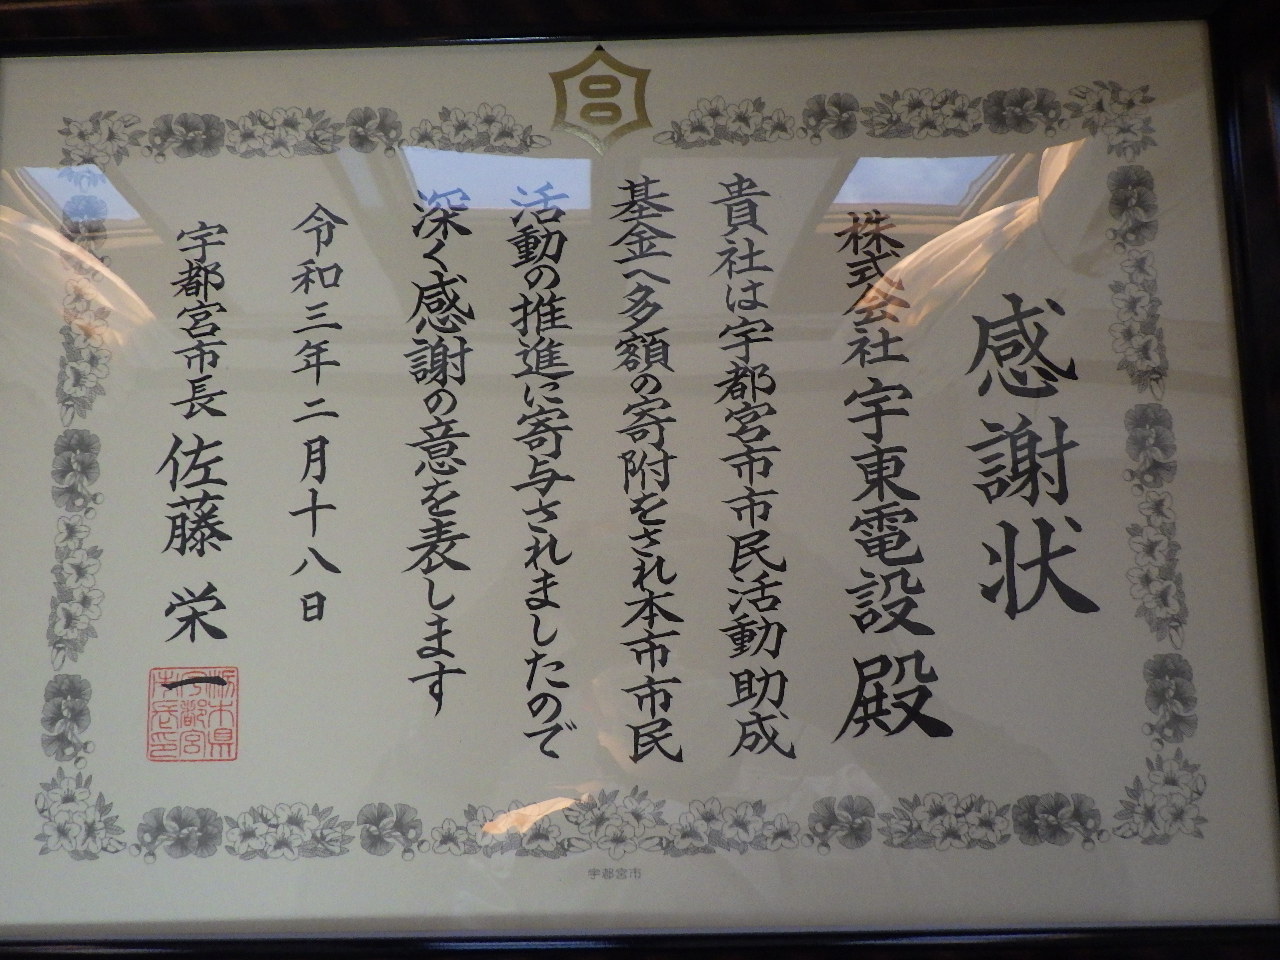 感謝状
株式会社 宇東電設 殿
貴社は宇都宮市市民活動助成
基金へ多額の寄附をされ本市市民
活動の推進に寄与されましたので
深く感謝の意を表します
令和三年二月十八日
宇都宮市長 佐藤 栄一
栃木県
宇都宮
市長印
宇都宮市